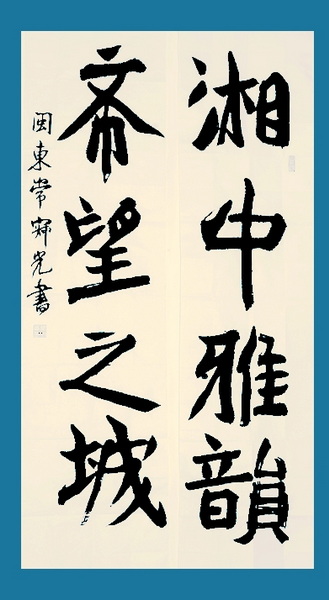 湘中雅韻
希望之城
閩東常光書